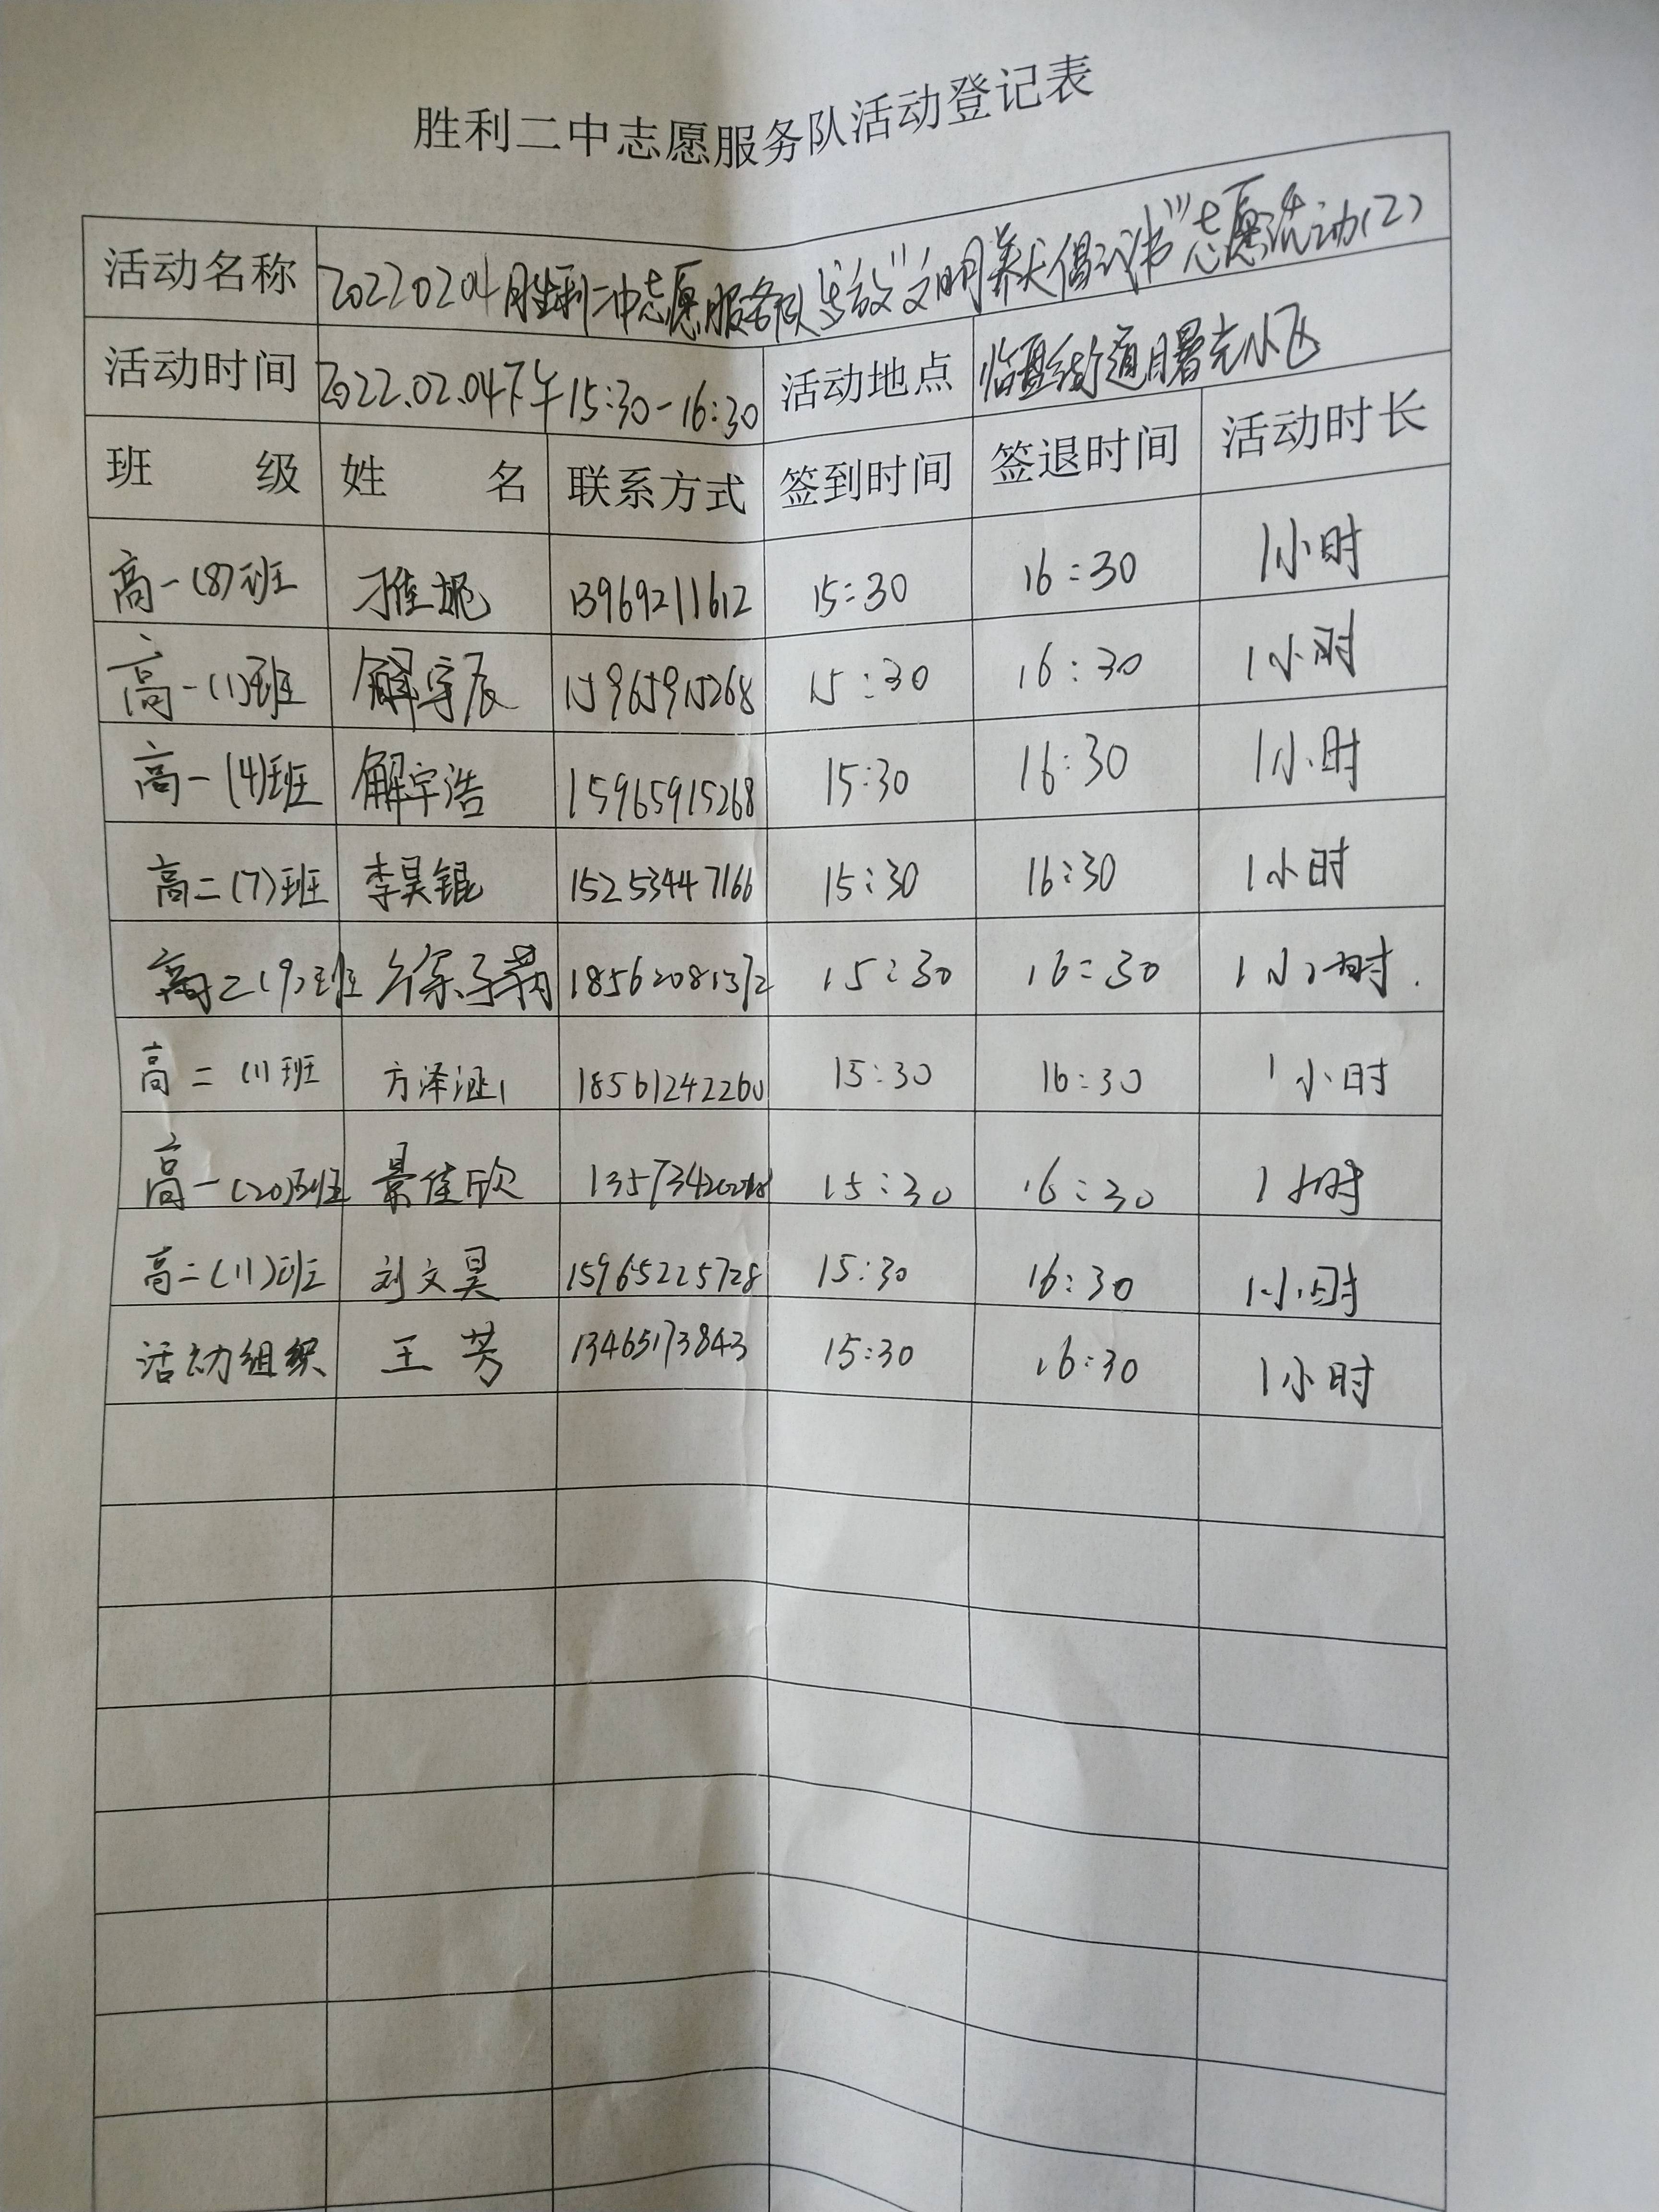 胜利二中志愿服务队活动登记表
活动名称 20220204胜利二中志愿服务队发放"文明养犬倡议书"志愿活动(2)
活动时间 2022.02.04下午15:30-16:30 活动地点 临盘街道曙光小区
班 级 姓 名 联系方式 签到时间 签退时间 活动时长
高一(8)班 刁佳妮 13969211612 15:30 16:30 1小时
高一(1)班 解宇辰 15965915268 15:30 16:30 1小时
高一(4)班 解宇浩 15965915268 15:30 16:30 1小时
高二(7)班 李昊锟 15253447166 15:30 16:30 1小时
高二(9)班 徐子 18562081372 15:30 16:30 1小时.
高二(1)班 方泽 18561242260 15:30 16:30 1小时
高一(20)班 景佳欣 15:30 16:30 1小时
高二(11)班 刘文昊 15965225728 15:30 16:30 1小时
活动组织 王芳 13465173843 15:30 16:30 1小时